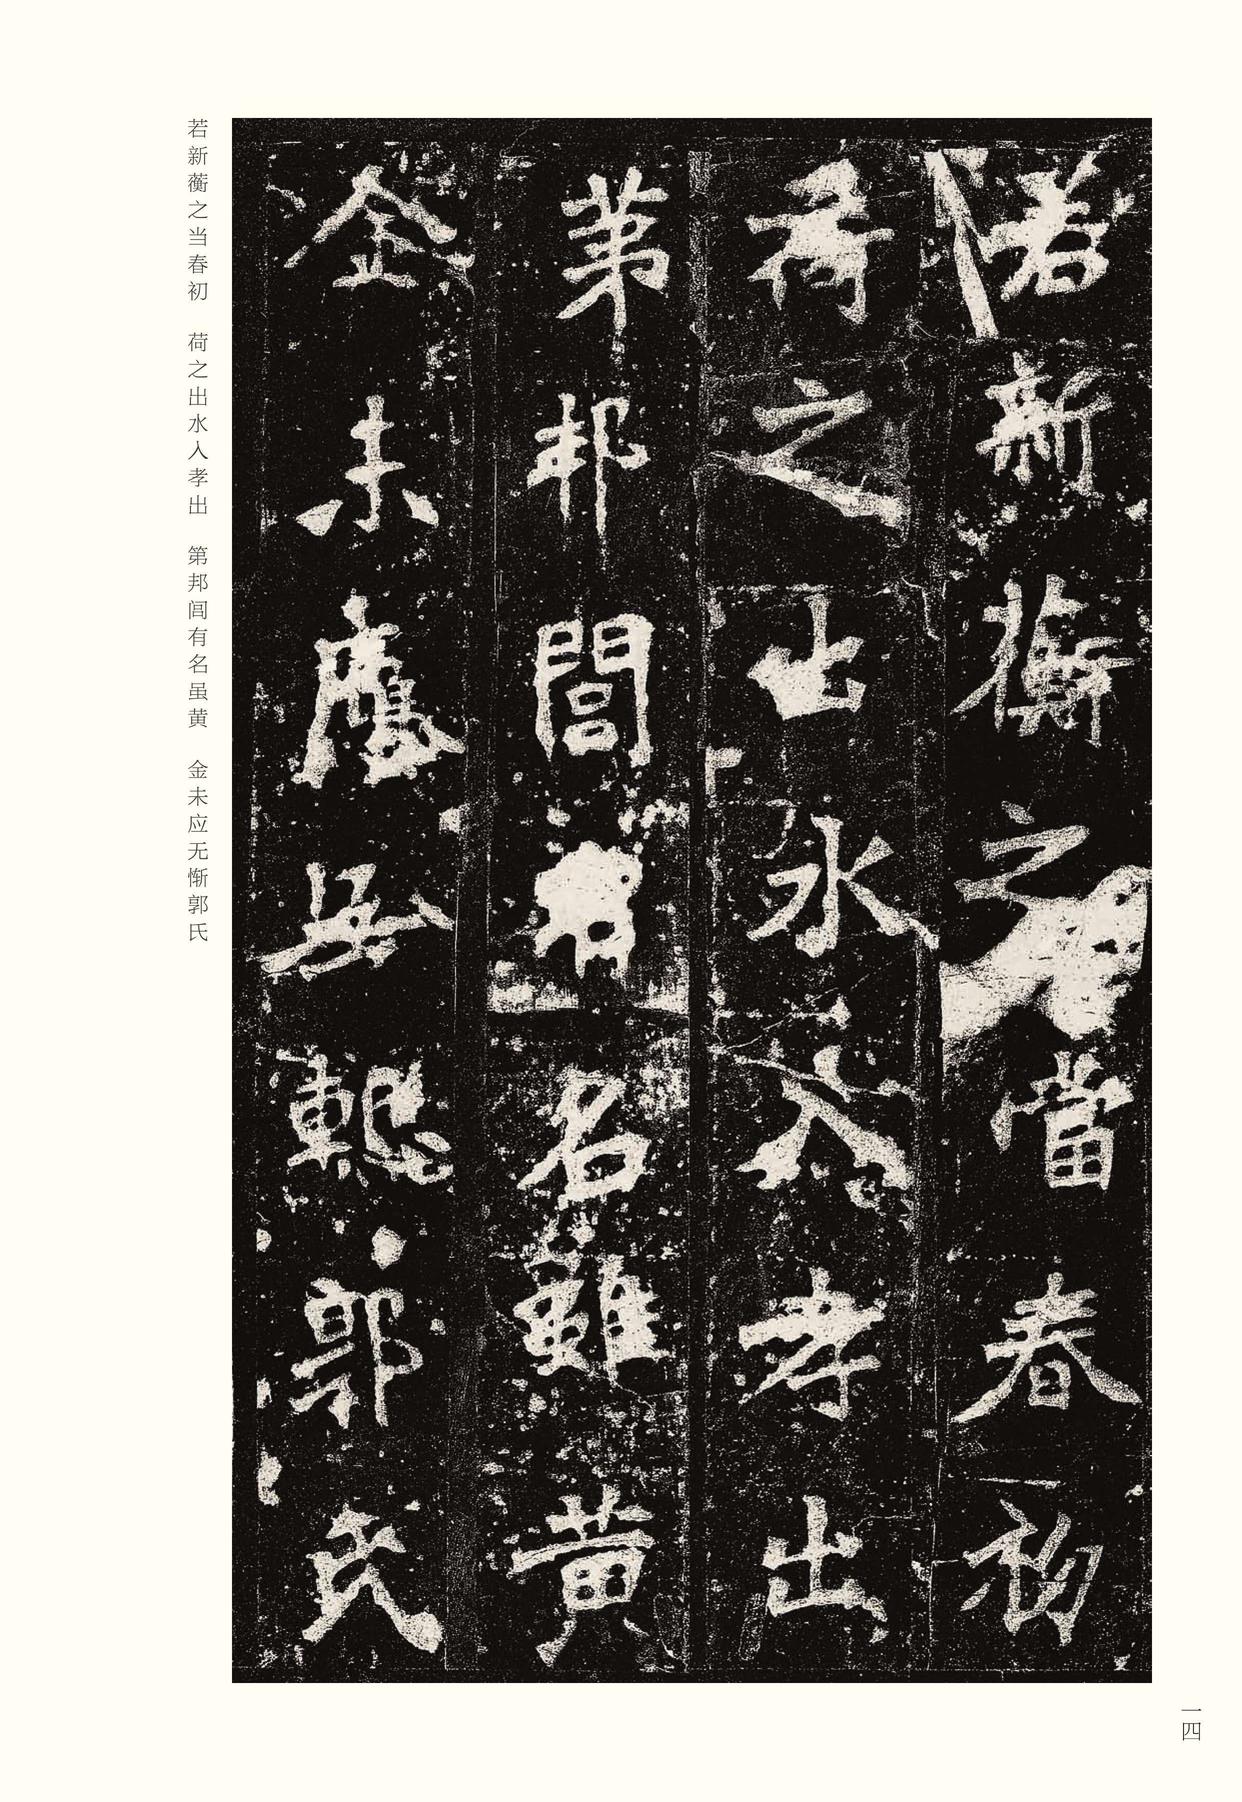 若新蘅之當春初
荷之出水入孝出
苐邦閭有名雖黄
金未應无慙郭氏
若新蘅之当春初　荷之出水入孝出　第邦闾有名虽黄　金未应无惭郭氏
一四